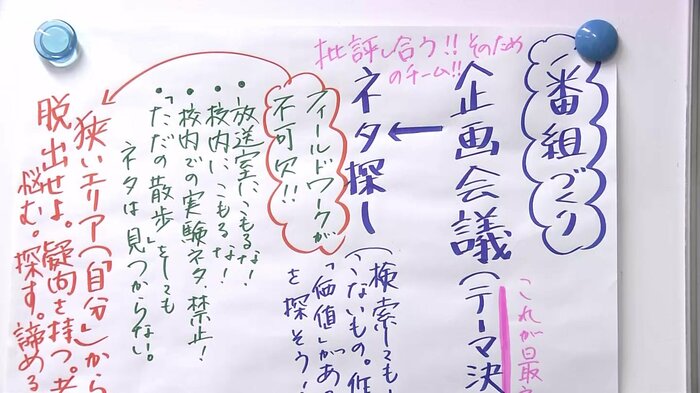 番組づくり
批評し合う!!そのため
のチーム!!
企画会議(テーマ決
これが最
ネタ探し
(検索しても
こないもの。
「価値」があ
を探そう!
フィールドワークが
不可欠!!
・放送室にこもるな!
・校内にこもるな!
・校内での実験ネタ、禁止!
・「ただの散歩」をしても
ネタは見つからない。
狭いエリア(「自分」)から
脱出せよ。疑問を持つ。
悩む。探す。諦める